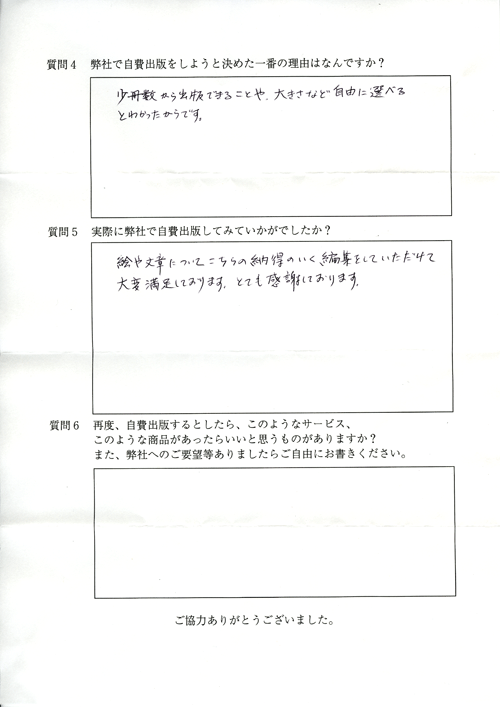 質問4 弊社で自費出版をしようと決めた一番の理由はなんですか?
少冊数から出版できることや、大きさなど自由に選べる
とわかったからです。
質問5 実際に弊社で自費出版してみていかがでしたか?
絵や文章についてこちらの納得のいく編集をしていただけて
大変満足しております。とても感謝しております。
質問6 再度、自費出版するとしたら、このようなサービス、
このような商品があったらいいと思うものがありますか?
また、弊社へのご要望等ありましたらご自由にお書きください。
ご協力ありがとうございました。